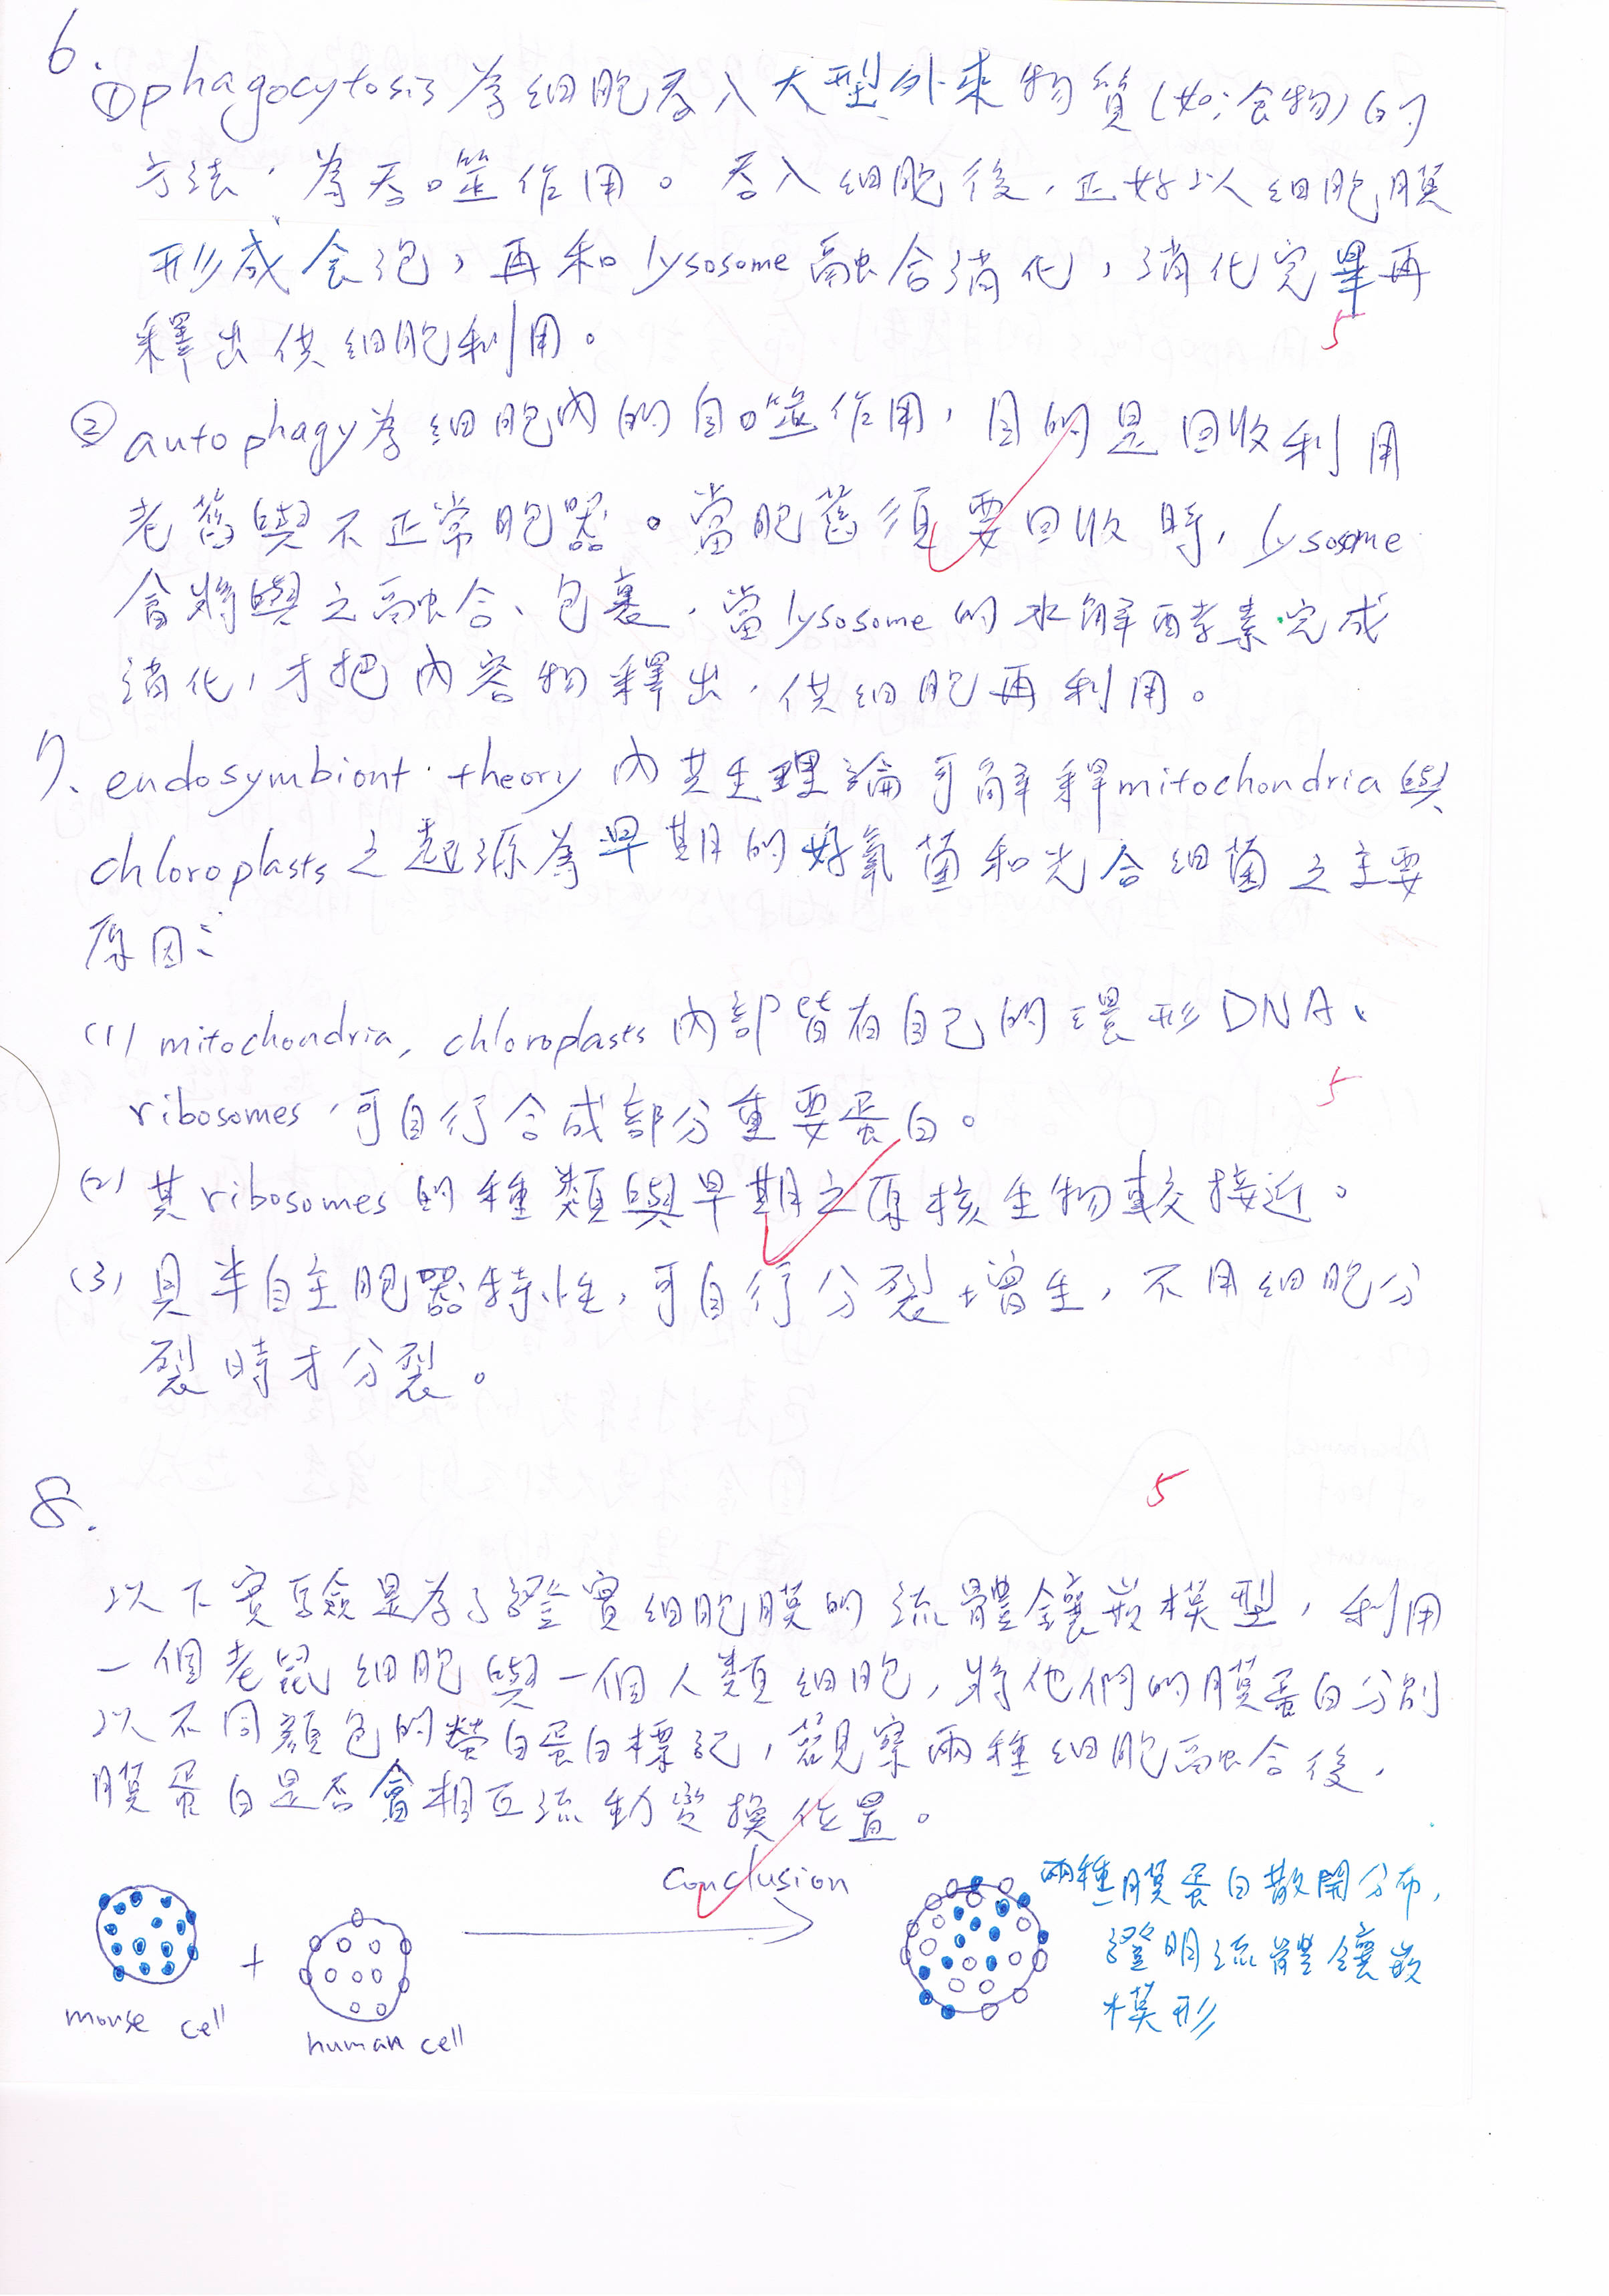 6.
①phagocytosis為細胞吞入大型外來物質(如:食物)的
方法,為吞噬作用。吞入細胞後,正好以細胞膜
形成食泡,再和lysosome融合消化,消化完畢再
釋出供細胞利用。
5
②autophagy為細胞內的自噬作用,目的是回收利用
老舊與不正常胞器。當胞舊須要回收時,lysosome
會將與之融合、包裹,當lysosome的水解酵素完成
消化,才把內容物釋出,供細胞再利用。
7. endosymbiont theory 內共生理論可解釋mitochondria與
chloroplasts之起源為早期的好氧菌和光合細菌之主要
原因:
(1) mitochondria, chloroplasts內部皆有自己的環形DNA、
5
ribosomes,可自行合成部分重要蛋白。
(2) 其ribosomes的種類與早期之原核生物較接近。
(3) 具半自主胞器特性,可自行分裂增生,不用細胞分
裂時才分裂。
5
8.
以下實驗是為了證實細胞膜的流體鑲嵌模型,利用
一個老鼠細胞與一個人類細胞,將他們的膜蛋白分別
以不同顏色的螢白蛋白標記,觀察兩種細胞融合後,
膜蛋白是否會相互流動變換位置。
conclusion
兩種膜蛋白散開分布,
證明流體鑲嵌
模形
+
mouse cell
human cell